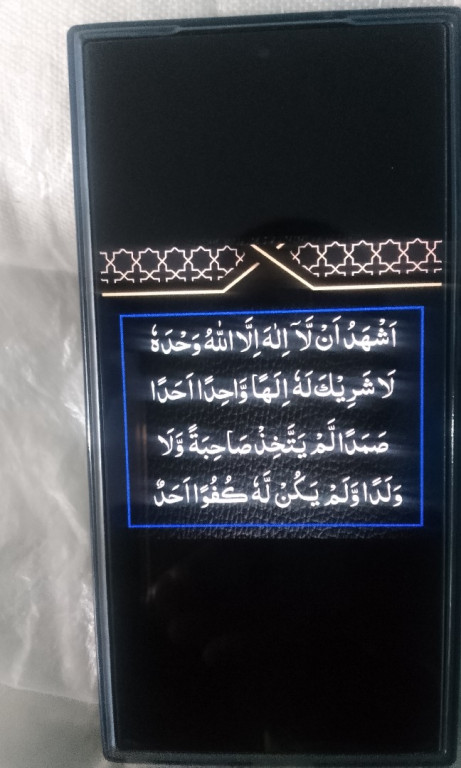 اَشْهَدُ اَنْ لَّآ اِلٰهَ اِلَّا اللّٰهُ وَحْدَهٗ
لَا شَرِيْكَ لَهٗ اِلَهًا وَّاحِدًا اَحَدًا
صَمَدًا لَّمْ يَتَّخِذْ صَاحِبَةً وَّلَا
وَلَدًا وَّلَمْ يَكُنْ لَّهٗ كُفُوًا اَحَدٌ